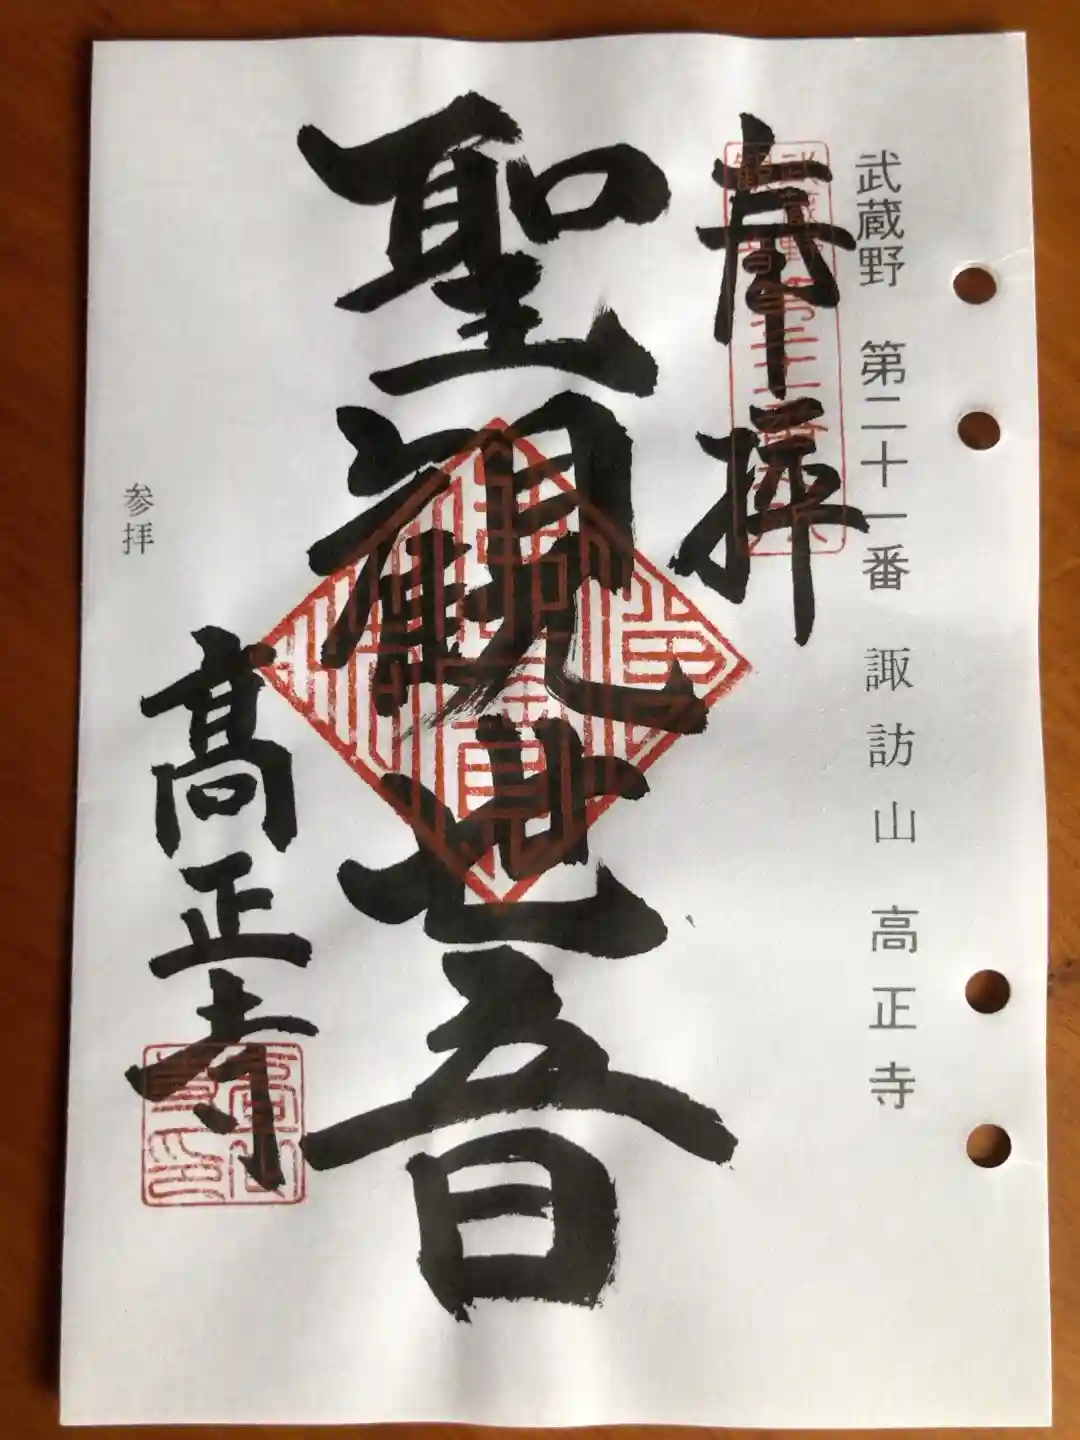 武蔵野 第二十一番 諏訪山 高正寺
奉拝
聖観世音
参拝
高正寺